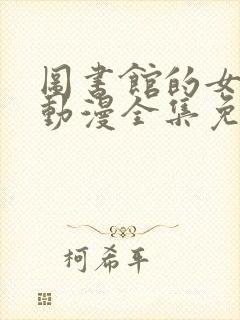 圖書館的女
動漫全集免
柯希平